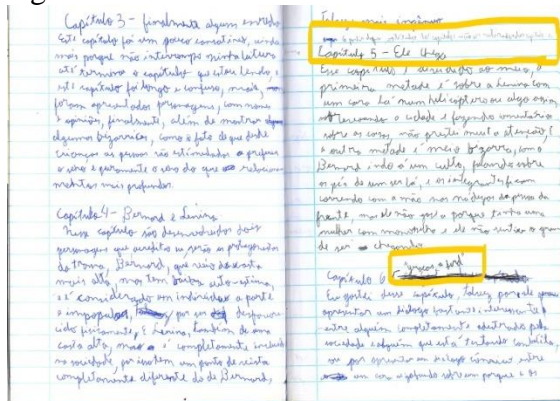 Capítulo 3 - finalmente algum enredo
Este capítulo foi um pouco cansativo, ainda
mais porque não interrompo minha leitura
até terminar o capítulo que estou lendo, e
este capítulo foi longo e confuso, mais,
foram apresentados personagens, com nomes
e opiniões, finalmente, além de mostrar
algumas bizarrices, como o fato de que desde
crianças as pessoas são estimuladas a
o e geralmente o do que
mais profundos.
Capítulo 4 - Bernard e Lenina
Nesse capítulo são desenvolvidos dois
personagens que acredito serão os protagonistas
da trama, Bernard, que veio da casta
mais alta, mas tem baixa autoestima,
e é considerado um indivíduo a parte
e impopular, por ser
fisicamente, E Lenina, também de uma
casta alta, mas é completamente
na sociedade, por isso tem um ponto de vista
completamente diferente do de Bernard,
Talvez mais
Capítulo 5 - Ele chega
Esse capítulo é dividido ao meio, a
primeira metade é sobre a Lenina com
um cara lá num helicóptero ou algo assim
a cidade e fazendo comentários
sobre as coisas, não prestei muita atenção, E
a outra metade é meio bizarra, com o
Bernard indo a um culto, falando sobre
os pés de um ser lá, e os integrantes ficam
correndo com a mão nas nádegas da pessoa da
frente, mas ele não gosta porque tinha uma
mulher com monocelha e ele não sentiu o
de ser chegando
Capítulo 6
Eu gostei desse capítulo, talvez, por ele
apresentar um diálogo bastante interessante
entre alguém completamente adestrado pela
sociedade e alguém que está tentando
ou por apresentar um diálogo cômico entre
um cara sobre um porque e os